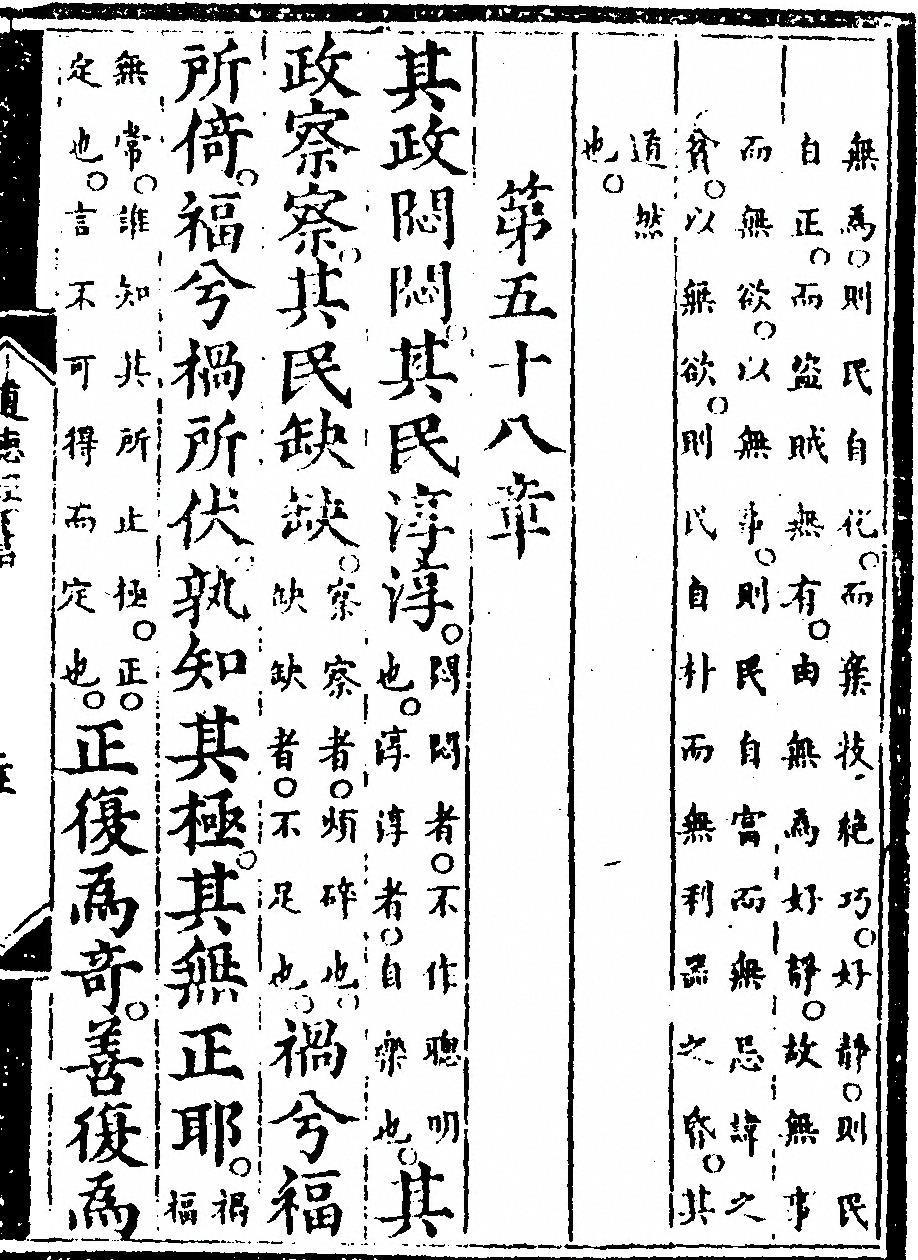 無為。則民自化。而棄技、絕巧。好靜。則民
自正。而盜賊無有。由無為好靜。故無事
而無欲。以無事。則民自富而無忌諱之
貧。以無欲。則民自朴而無利器之昏。其
道然
也。
第五十八章
其政悶悶。其民淳淳。悶悶者。不作聰明也。淳淳者。自樂也。其
政察察。其民缺缺。察察者。煩碎也。缺缺者。不足也。禍兮福
所倚。福兮禍所伏。孰知其極。其無正耶。禍福
無常。誰知其所止極。正。定也。言不可得而定也。正復為奇。善復為